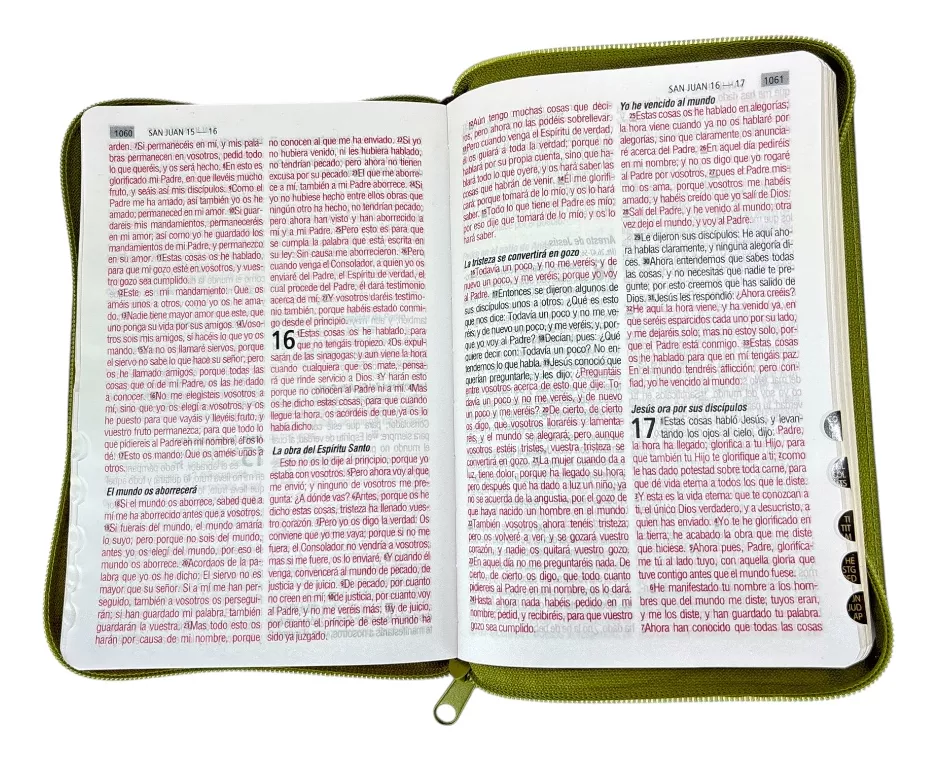 1060 SAN JUAN 15 16
arden. 7Si permanecéis en mí, y mis pala-
bras permanecen en vosotros, pedid todo
lo que queréis, y os será hecho. 8En esto es
glorificado mi Padre, en que llevéis mucho
fruto, y seáis así mis discípulos. 9Como el
Padre me ha amado, así también yo os he
amado; permaneced en mi amor. 10Si guar-
dareis mis mandamientos, permaneceréis
en mi amor; así como yo he guardado los
mandamientos de mi Padre, y permanezco
en su amor. 11Estas cosas os he hablado,
para que mi gozo esté en vosotros, y vues-
tro gozo sea cumplido.
12Este es mi mandamiento: Que os
améis unos a otros, como yo os he ama-
do. 13Nadie tiene mayor amor que este, que
uno ponga su vida por sus amigos. 14Voso-
tros sois mis amigos, si hacéis lo que yo os
mando. 15Ya no os llamaré siervos, porque
el siervo no sabe lo que hace su señor; pero
os he llamado amigos, porque todas las
cosas que oí de mi Padre, os las he dado
a conocer. 16No me elegisteis vosotros a
mí, sino que yo os elegí a vosotros, y os
he puesto para que vayáis y llevéis fruto, y
vuestro fruto permanezca; para que todo lo
que pidiereis al Padre en mi nombre, él os lo
dé. 17Esto os mando: Que os améis unos a
otros.
El mundo os aborrecerá
18Si el mundo os aborrece, sabed que a
mí me ha aborrecido antes que a vosotros.
19Si fuerais del mundo, el mundo amaría
lo suyo; pero porque no sois del mundo,
antes yo os elegí del mundo, por eso el
mundo os aborrece. 20Acordaos de la pa-
labra que yo os he dicho: El siervo no es
mayor que su señor. Si a mí me han per-
seguido, también a vosotros os persegui-
rán; si han guardado mi palabra, también
guardarán la vuestra. 21Mas todo esto os
harán por causa de mi nombre, porque
no conocen al que me ha enviado. 22Si yo
no hubiera venido, ni les hubiera hablado,
no tendrían pecado; pero ahora no tienen
excusa por su pecado. 23El que me aborre-
ce a mí, también a mi Padre aborrece. 24Si
yo no hubiese hecho entre ellos obras que
ningún otro ha hecho, no tendrían pecado;
pero ahora han visto y han aborrecido a
mí y a mi Padre. 25Pero esto es para que
se cumpla la palabra que está escrita en
su ley: Sin causa me aborrecieron. 26Pero
cuando venga el Consolador, a quien yo os
enviaré del Padre, el Espíritu de verdad, el
cual procede del Padre, él dará testimonio
acerca de mí. 27Y vosotros daréis testimo-
nio también, porque habéis estado conmi-
go desde el principio.
16 1Estas cosas os he hablado, para
que no tengáis tropiezo. 2Os expul-
sarán de las sinagogas; y aun viene la hora
cuando cualquiera que os mate, pensa-
rá que rinde servicio a Dios. 3Y harán esto
porque no conocen al Padre ni a mí. 4Mas
os he dicho estas cosas, para que cuando
llegue la hora, os acordéis de que ya os lo
había dicho.
La obra del Espíritu Santo
Esto no os lo dije al principio, porque yo
estaba con vosotros. 5Pero ahora voy al que
me envió; y ninguno de vosotros me pre-
gunta: ¿A dónde vas? 6Antes, porque os he
dicho estas cosas, tristeza ha llenado vues-
tro corazón. 7Pero yo os digo la verdad: Os
conviene que yo me vaya; porque si no me
fuera, el Consolador no vendría a vosotros;
mas si me fuere, os lo enviaré. 8Y cuando él
venga, convencerá al mundo de pecado, de
justicia y de juicio. 9De pecado, por cuanto
no creen en mí; 10de justicia, por cuanto voy
al Padre, y no me veréis más; 11y de juicio,
por cuanto el príncipe de este mundo ha
sido ya juzgado.
SAN JUAN 16 17 1061
12Aún tengo muchas cosas que deci-
ros, pero ahora no las podéis sobrellevar.
13Pero cuando venga el Espíritu de verdad,
él os guiará a toda la verdad; porque no
hablará por su propia cuenta, sino que ha-
blará todo lo que oyere, y os hará saber las
cosas que habrán de venir. 14Él me glorifi-
cará; porque tomará de lo mío, y os lo hará
saber. 15Todo lo que tiene el Padre es mío;
por eso dije que tomará de lo mío, y os lo
hará saber.
La tristeza se convertirá en gozo
16Todavía un poco, y no me veréis; y de
nuevo un poco, y me veréis; porque yo voy
al Padre. 17Entonces se dijeron algunos de
sus discípulos unos a otros: ¿Qué es esto
que nos dice: Todavía un poco y no me ve-
réis; y de nuevo un poco, y me veréis; y, por-
que yo voy al Padre? 18Decían, pues: ¿Qué
quiere decir con: Todavía un poco? No en-
tendemos lo que habla. 19Jesús conoció que
querían preguntarle, y les dijo: ¿Preguntáis
entre vosotros acerca de esto que dije: To-
davía un poco y no me veréis, y de nuevo
un poco y me veréis? 20De cierto, de cierto
os digo, que vosotros lloraréis y lamenta-
réis, y el mundo se alegrará; pero aunque
vosotros estéis tristes, vuestra tristeza se
convertirá en gozo. 21La mujer cuando da a
luz, tiene dolor, porque ha llegado su hora;
pero después que ha dado a luz un niño, ya
no se acuerda de la angustia, por el gozo de
que haya nacido un hombre en el mundo.
22También vosotros ahora tenéis tristeza;
pero os volveré a ver, y se gozará vuestro
corazón, y nadie os quitará vuestro gozo.
23En aquel día no me preguntaréis nada. De
cierto, de cierto os digo, que todo cuanto
pidiereis al Padre en mi nombre, os lo dará.
24Hasta ahora nada habéis pedido en mi
nombre; pedid, y recibiréis, para que vuestro
gozo sea cumplido.
Yo he vencido al mundo
25Estas cosas os he hablado en alegorías;
la hora viene cuando ya no os hablaré por
alegorías, sino que claramente os anuncia-
ré acerca del Padre. 26En aquel día pediréis
en mi nombre; y no os digo que yo rogaré
al Padre por vosotros, 27pues el Padre mis-
mo os ama, porque vosotros me habéis
amado, y habéis creído que yo salí de Dios.
28Salí del Padre, y he venido al mundo; otra
vez dejo el mundo, y voy al Padre.
29Le dijeron sus discípulos: He aquí aho-
ra hablas claramente, y ninguna alegoría di-
ces. 30Ahora entendemos que sabes todas
las cosas, y no necesitas que nadie te pre-
gunte; por esto creemos que has salido de
Dios. 31Jesús les respondió: ¿Ahora creéis?
32He aquí la hora viene, y ha venido ya, en
que seréis esparcidos cada uno por su lado,
y me dejaréis solo; mas no estoy solo, por-
que el Padre está conmigo. 33Estas cosas
os he hablado para que en mí tengáis paz.
En el mundo tendréis aflicción; pero con-
fiad, yo he vencido al mundo.
Jesús ora por sus discípulos
17 1Estas cosas habló Jesús, y levan-
tando los ojos al cielo, dijo: Padre,
la hora ha llegado; glorifica a tu Hijo, para
que también tu Hijo te glorifique a ti; 2como
le has dado potestad sobre toda carne, para
que dé vida eterna a todos los que le diste.
3Y esta es la vida eterna: que te conozcan a
ti, el único Dios verdadero, y a Jesucristo, a
quien has enviado. 4Yo te he glorificado en
la tierra; he acabado la obra que me diste
que hiciese. 5Ahora pues, Padre, glorifíca-
me tú al lado tuyo, con aquella gloria que
tuve contigo antes que el mundo fuese.
6He manifestado tu nombre a los hom-
bres que del mundo me diste; tuyos eran,
y me los diste, y han guardado tu palabra.
7Ahora han conocido que todas las cosas
TI
TIT
HE
STG
JUD
AP